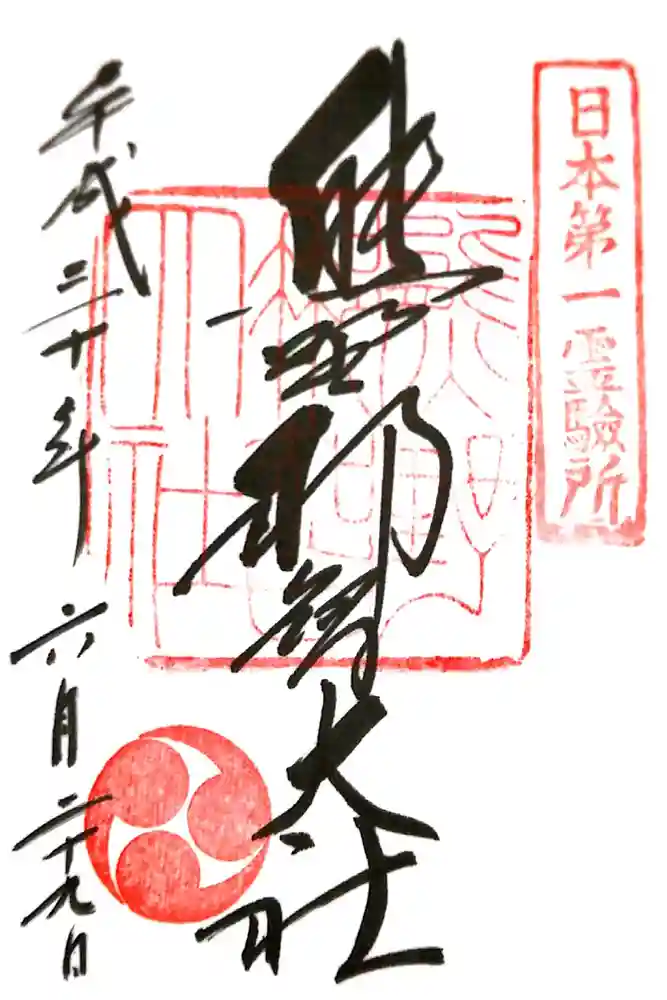 日本第一霊驗所
熊野那智大社
平成三十年六月二十九日